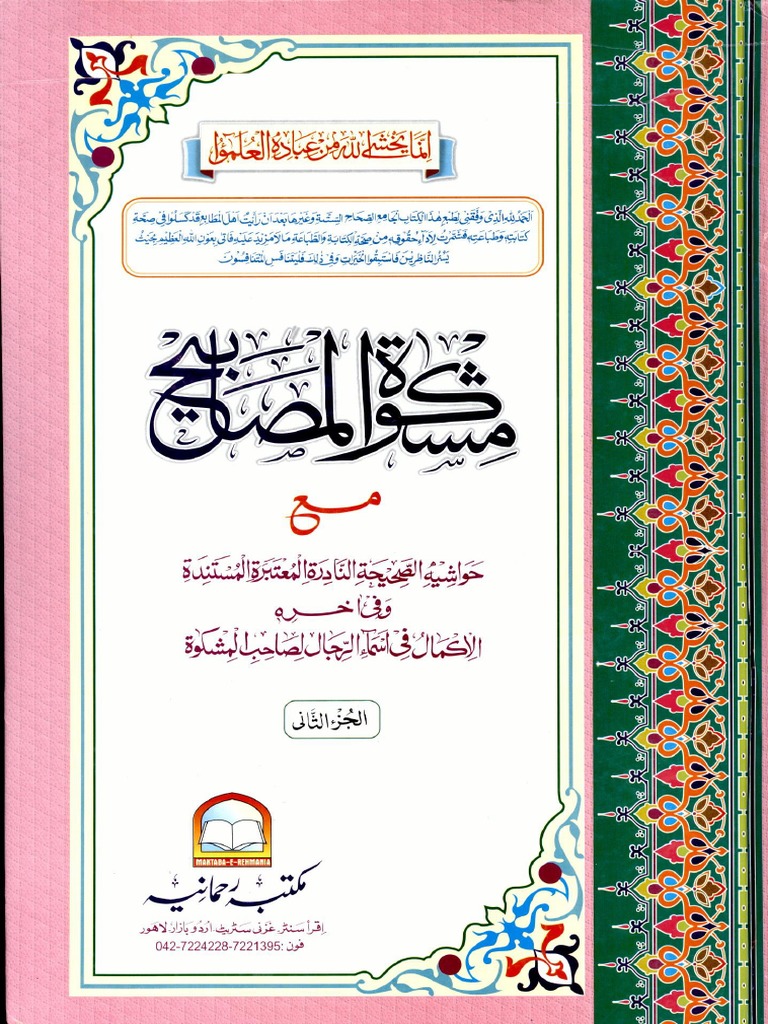 إنما يخشى الله من عباده العلموا
الحمد لله الذي وفقني لطبع هذا الكتاب الجامع الصحاح الستة وغيرها بعد ان رأيت اهل المطابع قد كسلوا في صحة
كتابته وطباعته فشمرت لاداء حقوقه من صحة الكتابة والطباعة ما لا مزيد عليه فاتى بعون الله العظيم بحيث
يسر الناظرين فاستبقوا الخيرات وفي ذلك فليتنافس المتنافسون
مِشكوة المصابيح
مع
حَواشيه الصَّحِيحَة النَّادِرَة المُعتَبَرَة المُستَنِدَة
وَفي اخره
الاكمالُ في اسماءِ الرِّجال لصاحبِ المِشكوة
الجُزء الثَّانی
MAKTABA-E-REHMANIA
مکتبہ رحمانیہ
اِقرأ سنٹر غزنی سٹریٹ، اردو بازار، لاهور
فون: 042-7224228-7221395